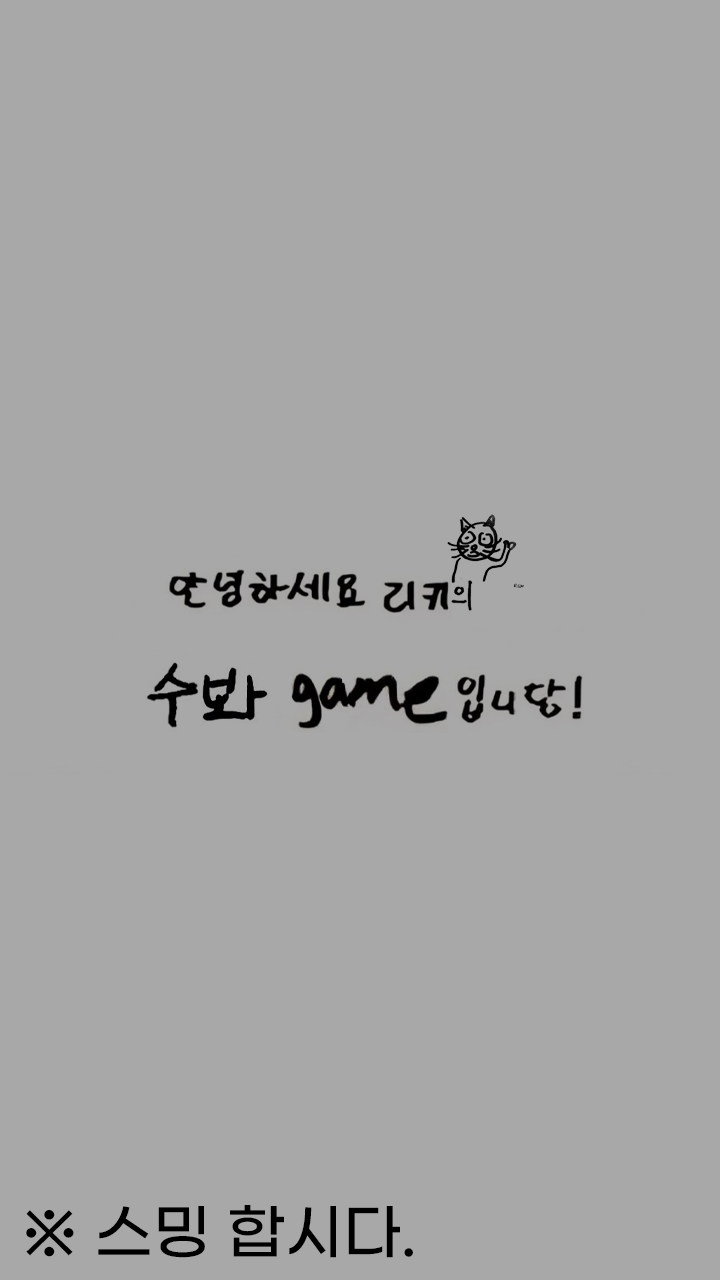 안녕하세요 리키의
수봐 game입니당!
※ 스밍 합시다.